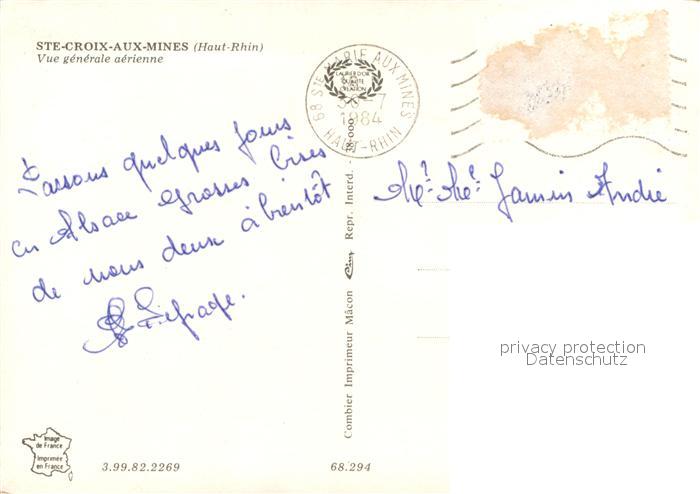 STE-CROIX-AUX-MINES (Haut-Rhin)
Vue générale aérienne
68 STE MARIE AUX MINES
LAURIER D'OR
QUALITÉ
CRÉATION
-7
1984
HAUT-RHIN
Passons quelques jours
en Alsace Grosses bises
de nous deux à bientôt
Lepage.
Mr. Me. Jamin André
Combier Imprimeur Mâcon Cim Repr. Interd. - 18-000
privacy protection
Datenschutz
Image
de France
Imprimée
en France
3.99.82.2269
68.294